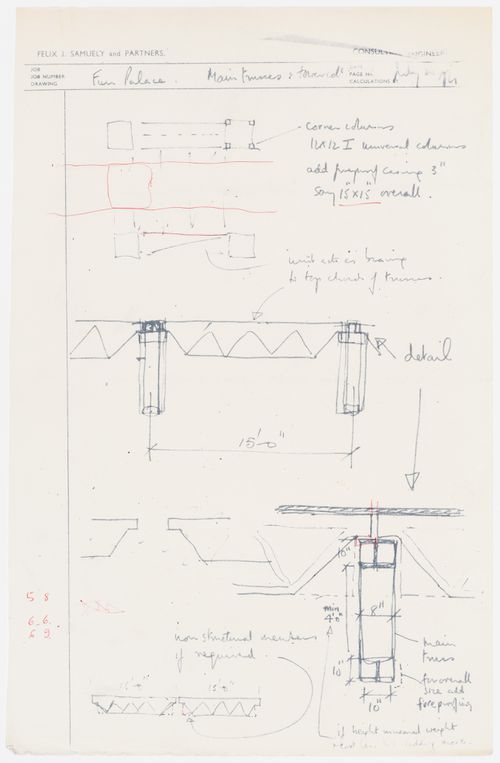 FELIX J. SAMUELY and PARTNERS.
CONSULTING ENGINEERS
JOB
JOB NUMBER
DRAWING
Fun Palace. Main trusses &
PAGE No.
CALCULATIONS
corner columns
12x12 I universal columns
add fireproof casing 3"
say 15"x15" overall.
unit acts as bracing
to top chords of trusses.
detail
15'-0"
10"
min
4'0"
8"
10"
10"
main
truss
for overall
size add
fireproofing
5 8
6.6.
6 9.
non structural members
if required.
15'-0"
15'-0"
if height minimal weight